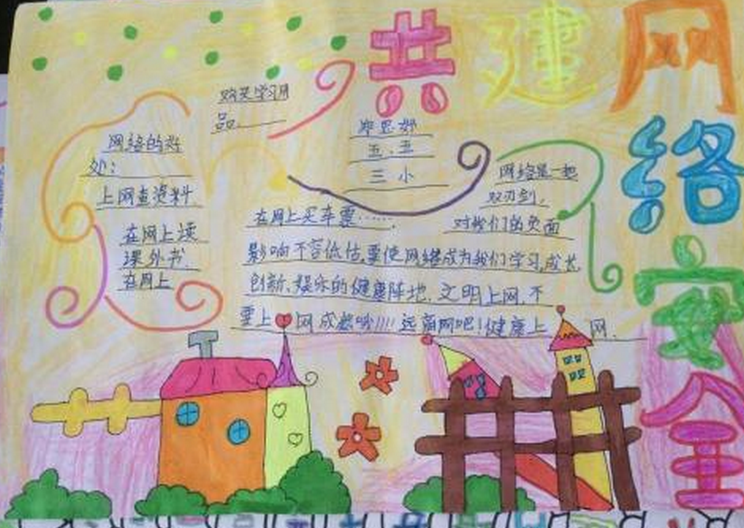 共建网络安全
购买学习用
品.
网络的好
处:
上网查资料.
在网上读
课外书.
在网上
五.五
三小
网络是一把
双刃剑,
在网上买车票……
对我们的负面
影响不容低估,要使网络成为我们学习,成长
创新、娱乐的健康阵地.文明上网.不
要上网成瘾哦!!!!远离网吧!健康上网.